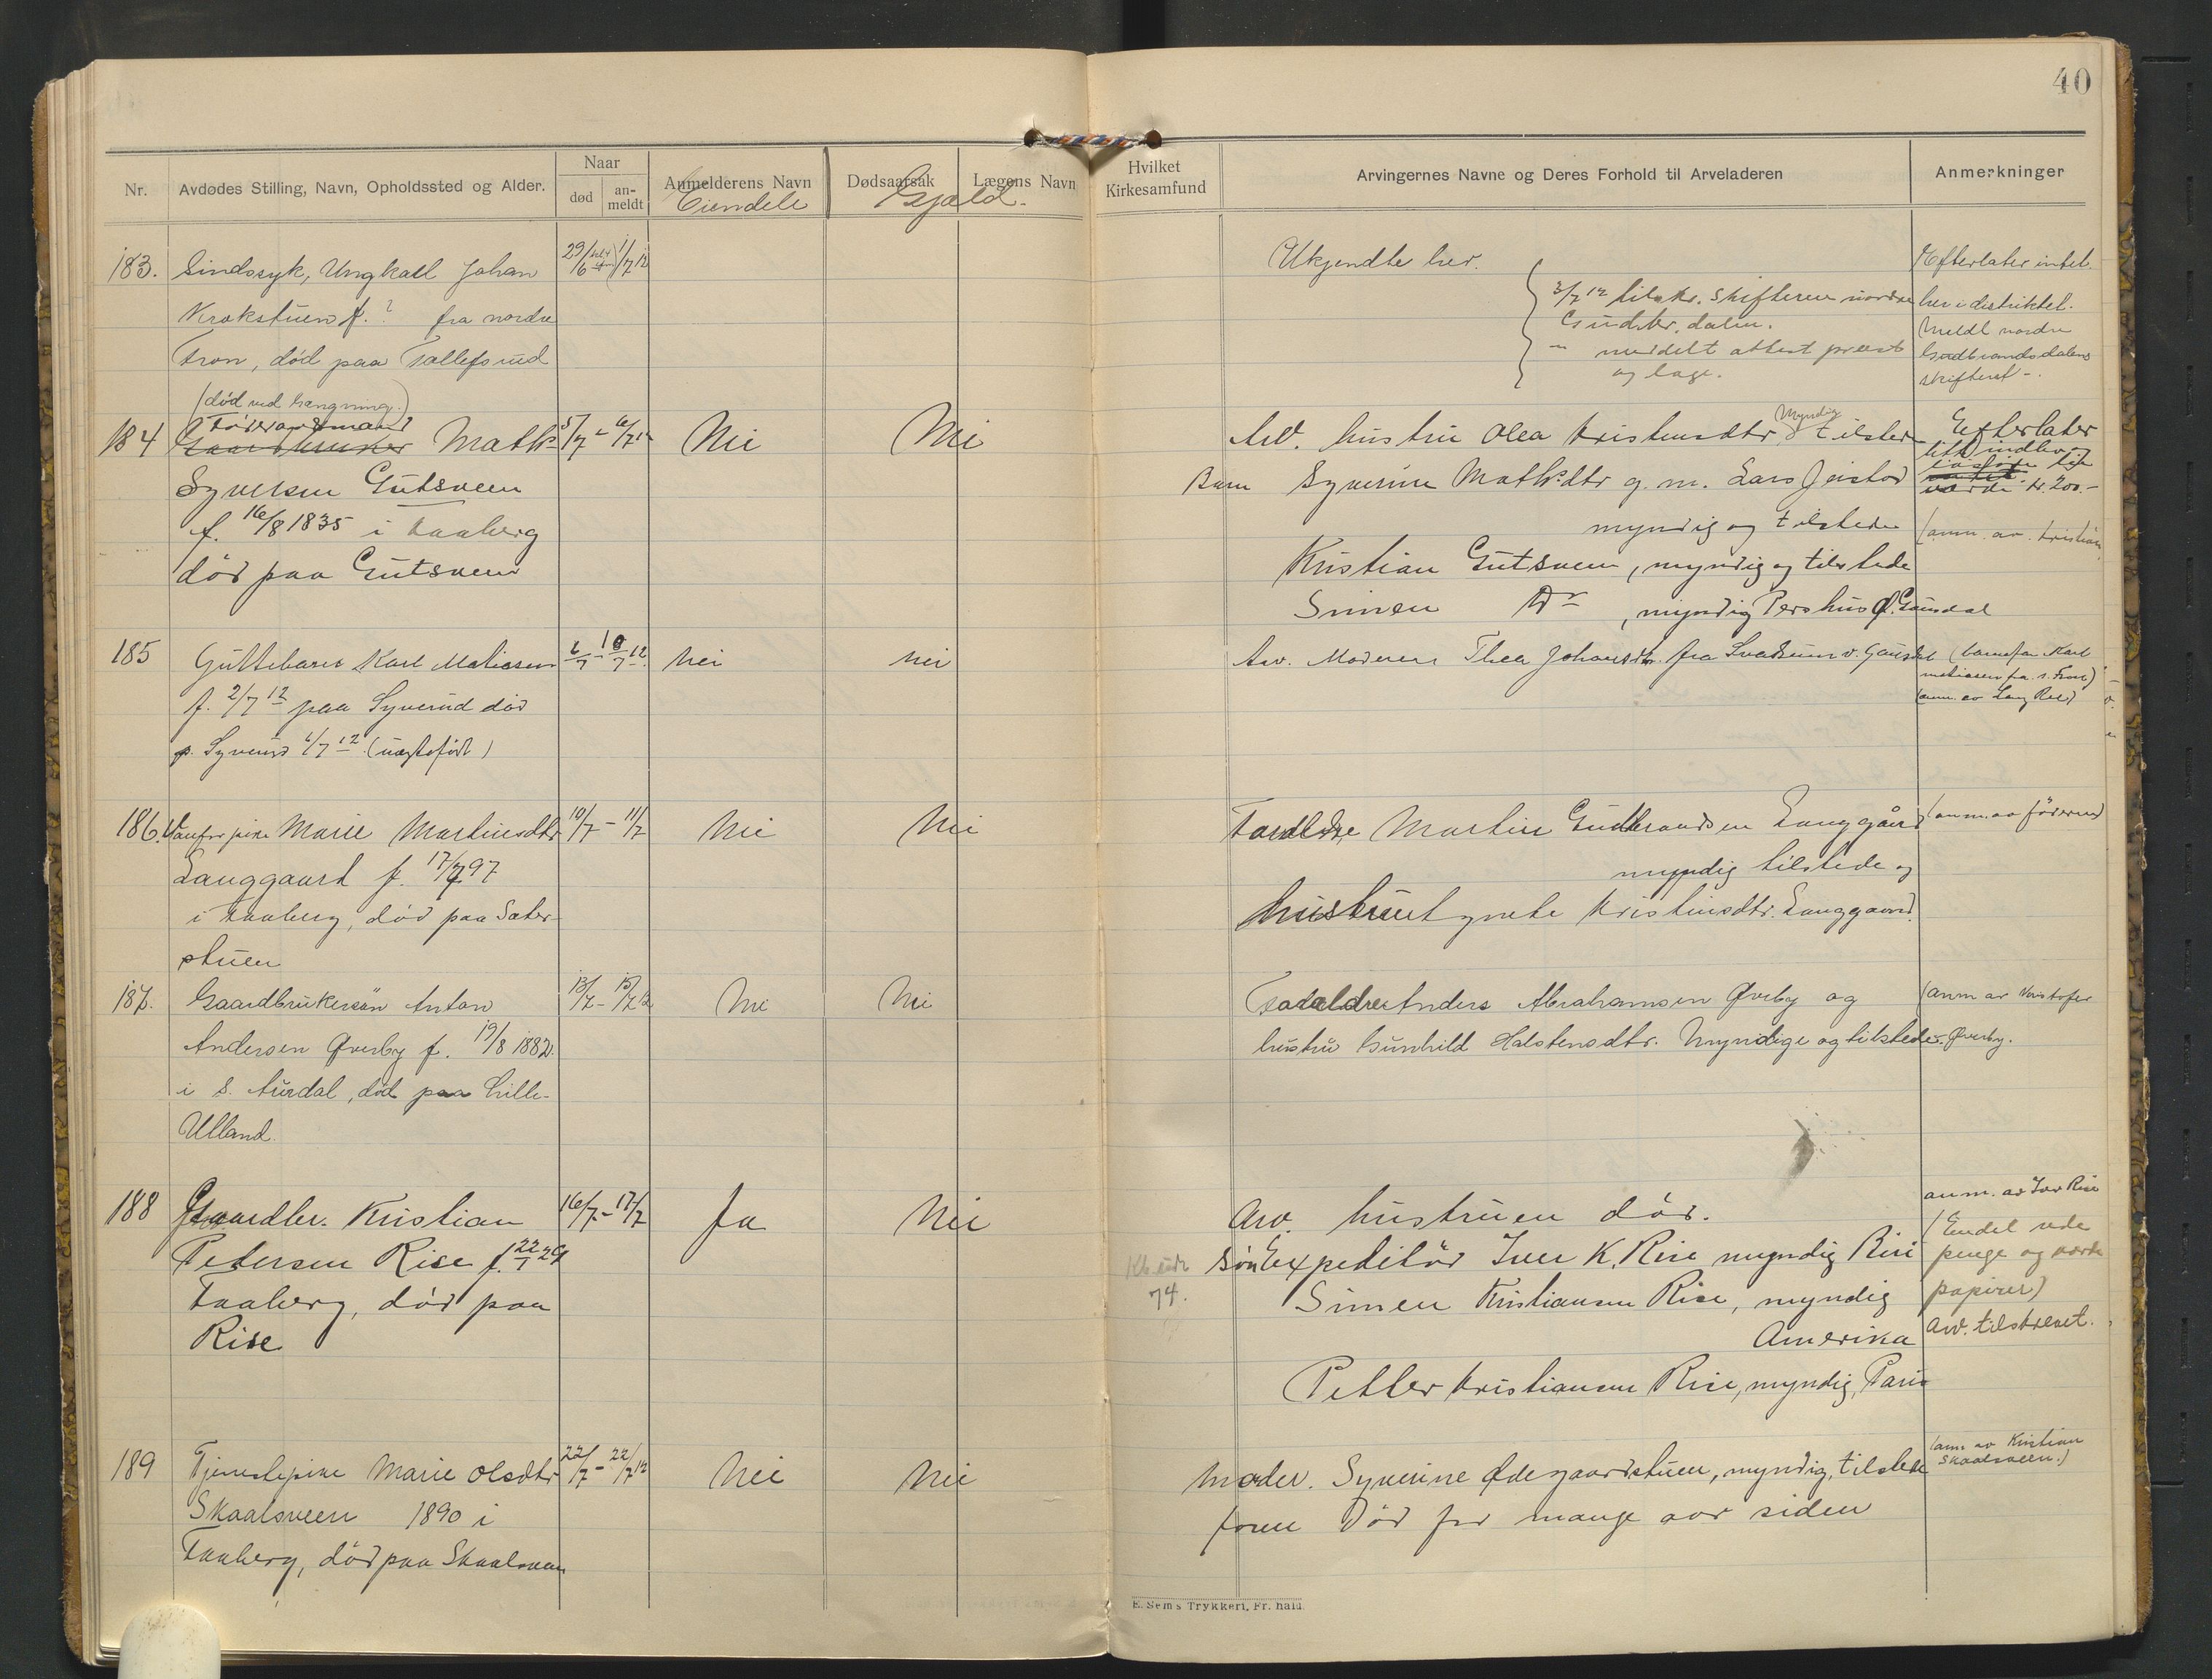 40
Nr.
Avdødes Stilling, Navn, Opholdssted og Alder.
Naar
død
an-
meldt
Anmelderens Navn
Eiendele
Dødsaarsak
Gjæld.
Lægens Navn
Hvilket
Kirkesamfund
Arvingernes Navne og Deres Forhold til Arveladeren
Anmerkninger
183. Sindssyk, Ungkall Johan 29/6 1/7 12
Krokstuen f. ? fra nordre
Fron, død paa Tollefsrud
(død ved hængning.)
Ukjendte her.
3/7 12 tilskr. Skifteren nordre
Gudbr. dalen.
meddelt attest prest
og læge.
Efterlater intet
her i distriktet.
Meldt nordre
Gudbrandsdalens
skifteret -.
184 Føderaadsmand
Gaardbruker Maths 5/7 - 6/7 12 Nei Nei
Syversen Gutsveen
f. 16/8 1835 i Faaberg
død paa Gutsveen
Arv. hustru Olea Kristensdtr. Myndig & tilstede
Barn Syverine Mathsdtr g. m. Lars Jevstad
myndig og tilstede
Kristian Gutsveen, myndig og tilstede
Simen Do , myndig Pershus Ø. Gausdal
Efterlater
litt indbo
værdi kr. 200.-
(anm. av. Kristian
185 Guttebarn Karl Matiasen 6/7 - 10/7 12. nei nei
f. 2/7 12 paa Syverud død
p. Syverud 6/7 12. (uægtefødt)
Arv. Moderen Thea Johansdtr. fra Svatsum v. Gausdal
(barnefar Karl
matiasen fra s. Fron)
(anm. av Lang Ree)
186. Ungpike Marie Martinsdtr 10/7 - 11/7 Nei Nei
Langgaard f. 17/7 97
i Faaberg, død paa Sæter-
stuen
Forældre Martin Gudbrandsen Langgård
myndig tilstede og
hustru Agnete Kristinsdtr. Langgaard.
(anm. av föderen)
187. Gaardbrukersøn Anton 13/7 - 15/7 12 Nei Nei
Andersen Øverby f. 19/8 1882.
i S. Aurdal, død paa Lille-
Ulland.
Forældre Anders Abrahamsen Øverby og
hustru Gunhild Halstensdtr. Myndige og tilstede.
(anm av Kristofer
Øverby.
188 Gaardbr. Kristian 16/7 - 17/7 Ja Nei
Petersen Rise f. 22/1 29
Faaberg, død paa
Rise
74.
Arv. hustruen död.
Søn Expeditør Iver K. Rise myndig Biri
Simen Kristiansen Rise, myndig
Amerika
Petter Kristiansen Rise, myndig, Paris
anm. av Iver Rise
(Endel rede
penge og værdi
papirer)
Arv. tilskrevet.
189 Tjenestepike Marie Olsdtr 22/7 - 22/7 12 Nei Nei
Skaalsveen 1890 i
Faaberg, død paa Skaalsveen
Moder. Syverine Ødegaardstuen, myndig, tilstede
faren Død for mange aar siden
(anm av Kristian
Skaalsveen.)
E. Sem's Trykkeri, Fr. hald.